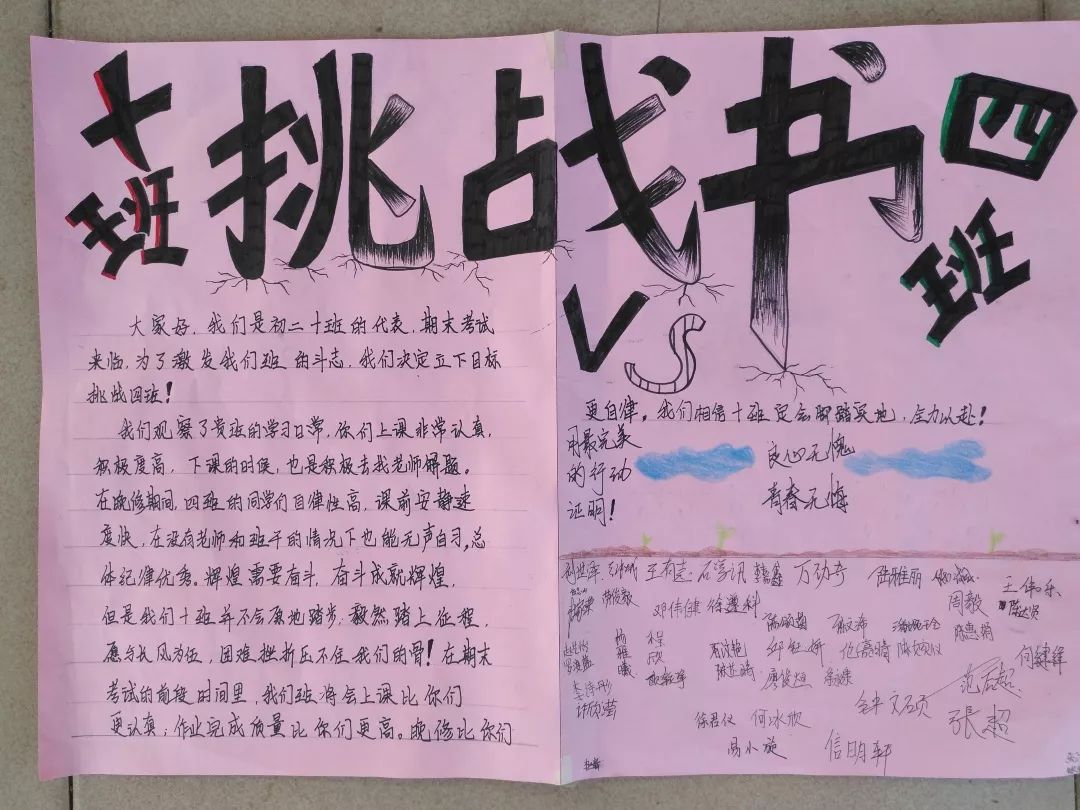 十班
挑战书
四班
VS
大家好，我们是初二十班的代表，期末考试
来临，为了激发我们班的斗志，我们决定立下目标
挑战四班！
我们观察了贵班的学习日常，你们上课非常认真，
积极度高，下课的时候，也是积极去找老师解题。
在晚修期间，四班的同学们自律性高，课前安静速
度快，在没有老师和班干的情况下也能无声自习，总
体纪律优秀。辉煌需要奋斗，奋斗成就辉煌，
但是我们十班并不会原地踏步，毅然踏上征程，
愿与长风为伍，困难挫折压不住我们的骨！在期末
考试的前段时间里，我们班将会上课比你们
更认真；作业完成质量比你们更高。晚修比你们
更自律。我们相信十班定会脚踏实地，全力以赴！
用最完美
的行动
证明！
良心无愧
青春无悔
王有志 石学讯 万劲奇 陆雅丽 王伟乐
邓伟健 徐遵科 周毅
陈惠娟
何键锋
杨雅曦
程欣
范启超
徐君仪 何冰欣 张超
易小漩 信明轩